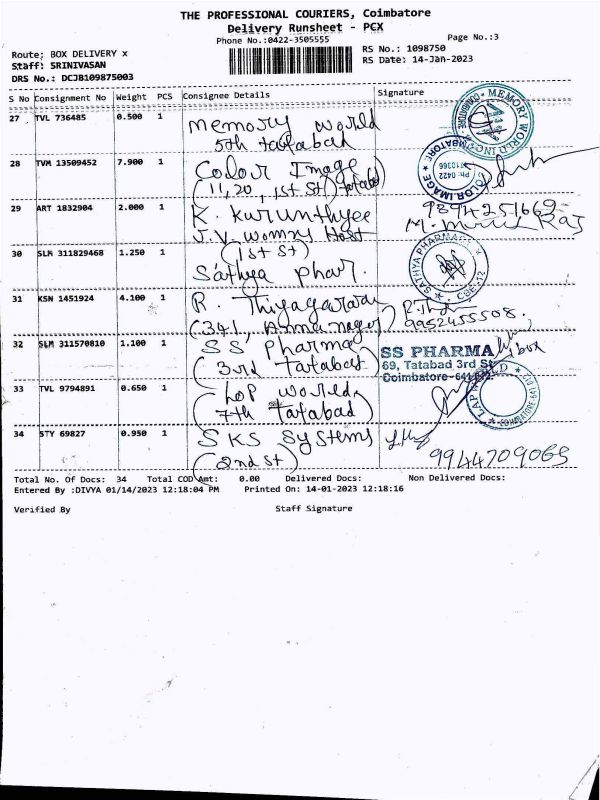 THE PROFESSIONAL COURIERS, Coimbatore
Delivery Runsheet - PCX
Phone No.:0422-3505555
Page No.:3
Route; BOX DELIVERY x
RS No.: 1098750
Staff: SRINIVASAN
RS Date: 14-Jan-2023
DRS No.: DCJB109875003
S No Consignment No Weight PCS Consignee Details Signature
27 TVL 736485 0.500 1 Memory World
5th tatabad
MEMORY WORLD INC
28 TVM 13509452 7.900 1 Colour Image
(11,20, 1st St) tatabad)
COLOR IMAGE
Ph: 0422
29 ART 1832904 2.000 1 K. Kurunthyee
9894251669
J.V. womns Host
(1st St)
30 SLM 311829468 1.250 1 Sathya phar.
SATHYA PHARMA
CBE-12
31 KSN 1451924 4.100 1 R. Thiyagaraja
(341, Anna nagar)
9952455508.
32 SLM 311570810 1.100 1 SS Pharma
(3rd Tatabad)
SS PHARMA
69, Tatabad 3rd St
Coimbatore-641012
box
33 TVL 9794891 0.650 1 LOP World
(7th Tatabad)
34 STY 69827 0.950 1 SKS Systems
(2nd St)
9944709065
Total No. Of Docs: 34 Total COD Amt: 0.00 Delivered Docs: Non Delivered Docs:
Entered By :DIVYA 01/14/2023 12:18:04 PM Printed On: 14-01-2023 12:18:16
Verified By Staff Signature